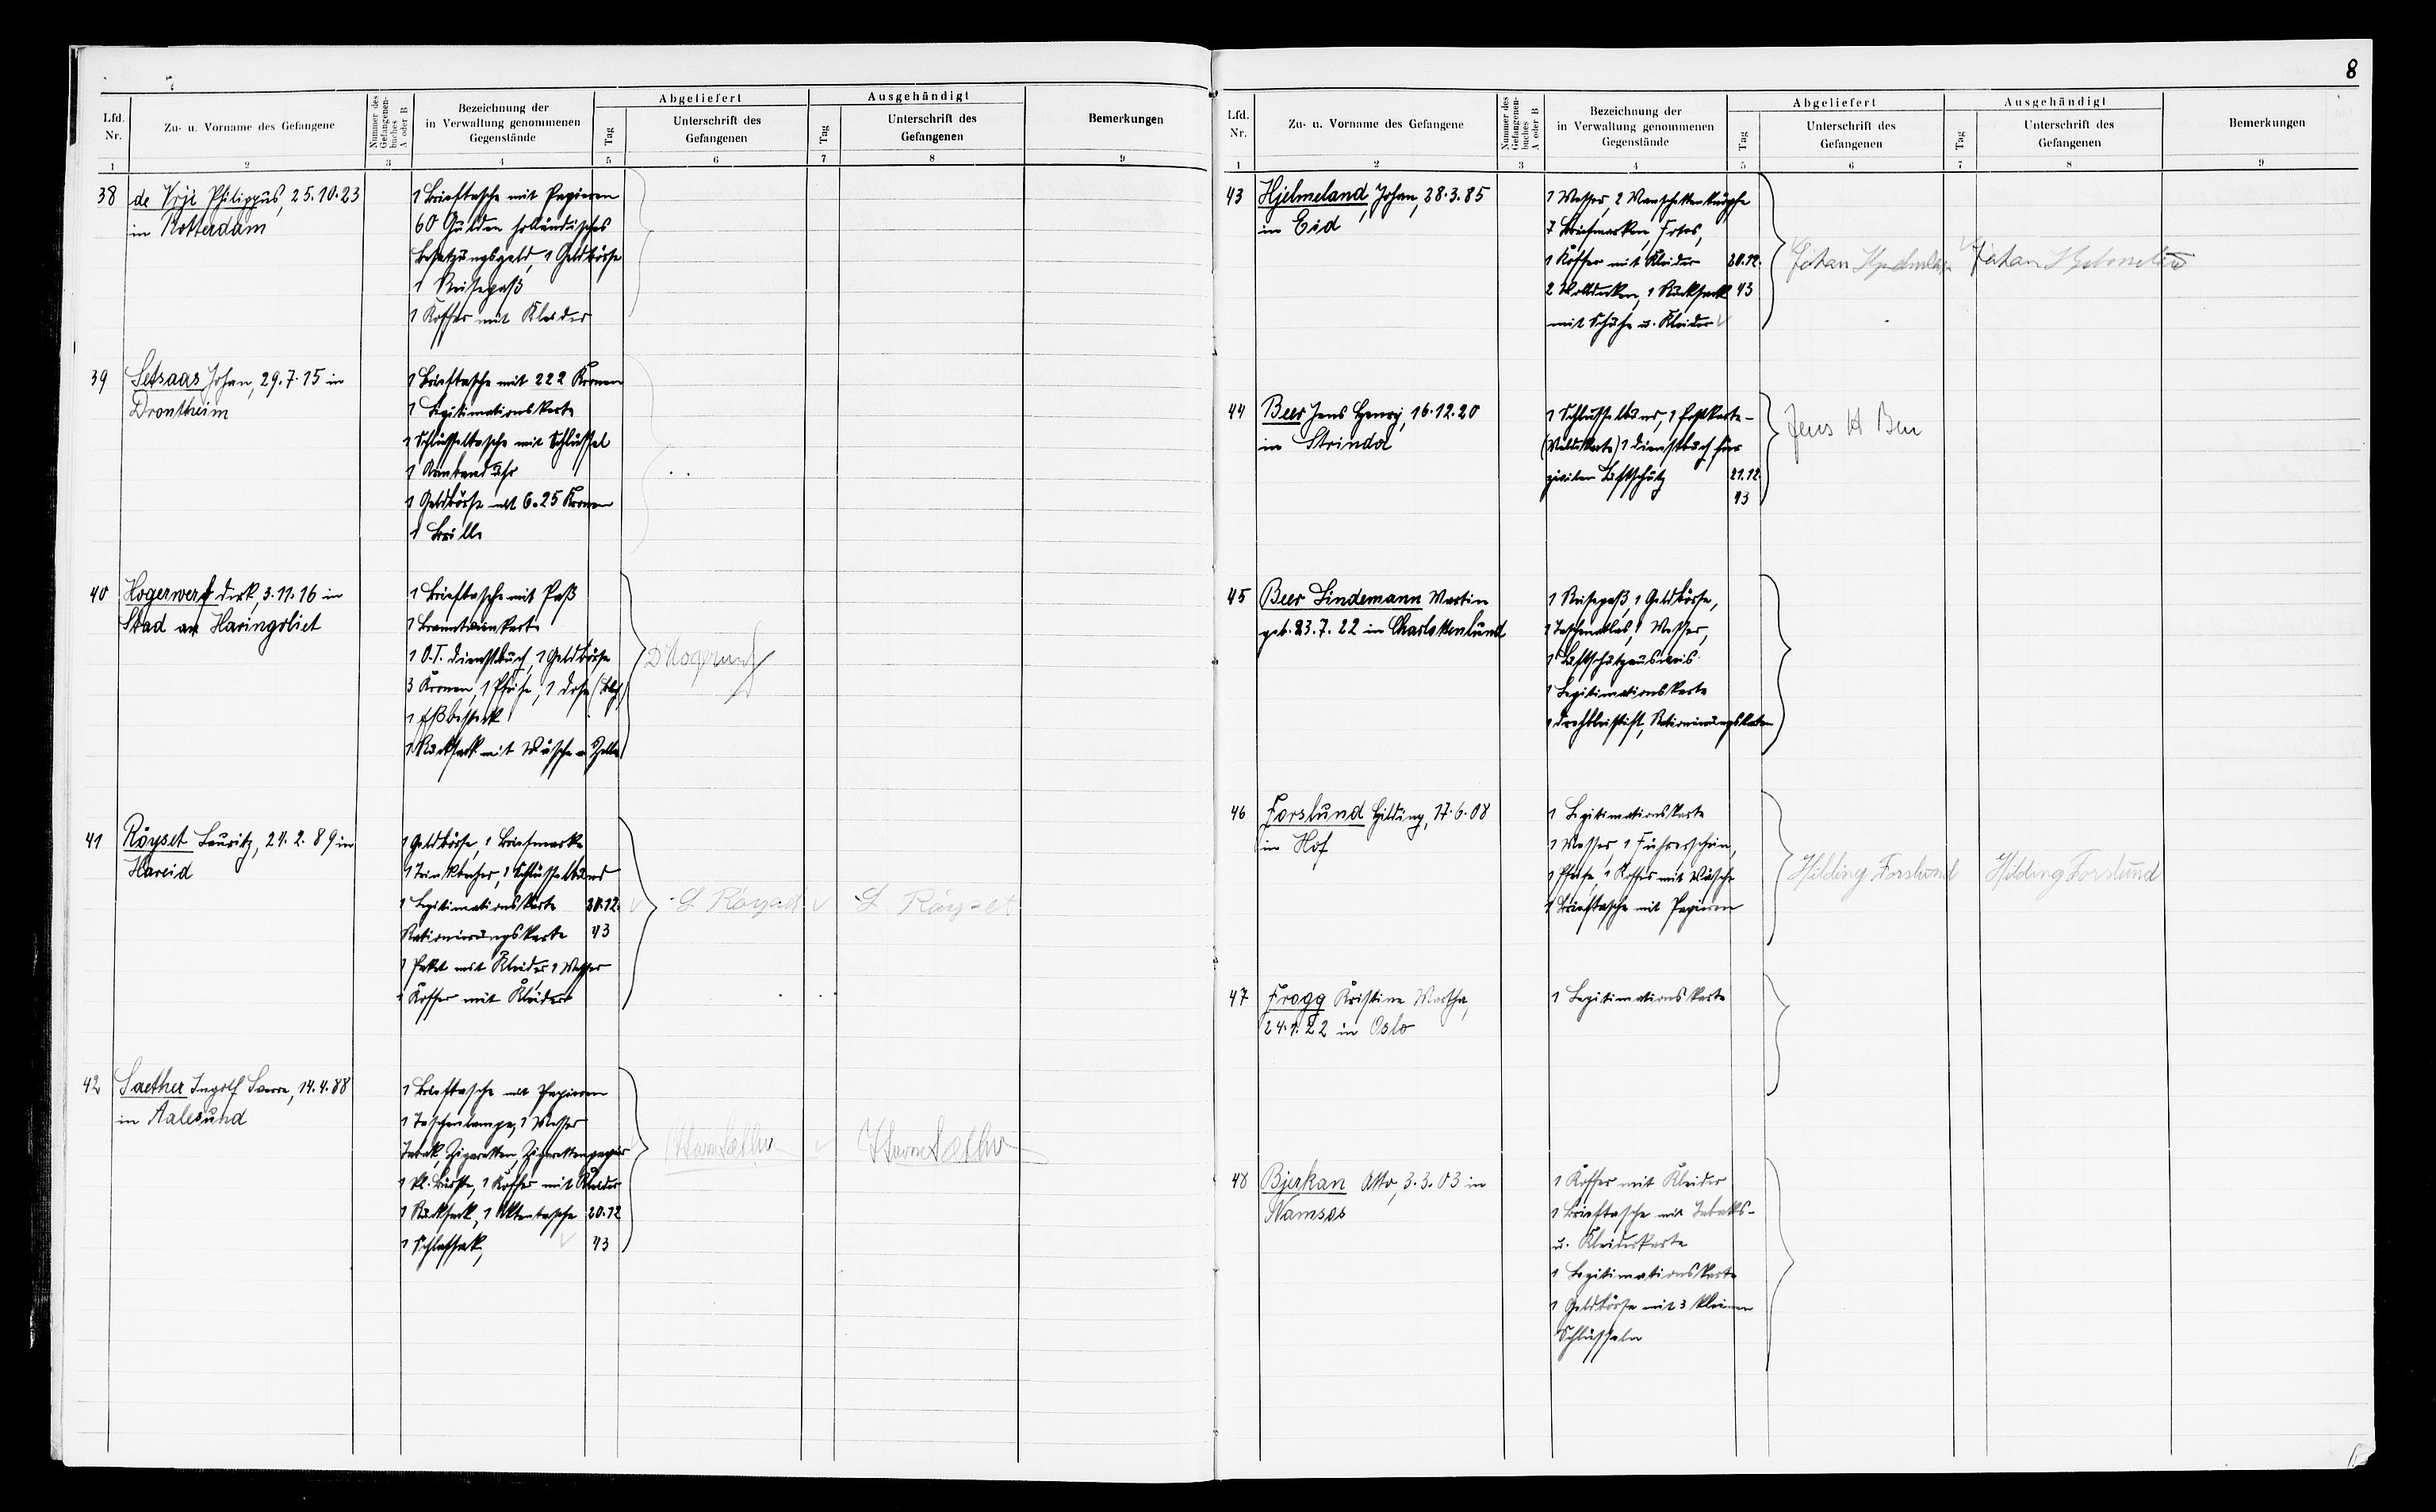 7
Lfd. Nr.
Zu- u. Vorname des Gefangene
Nummer des Gefangenen-buches A oder B
Bezeichnung der in Verwaltung genommenen Gegenstände
Abgeliefert
Tag
Unterschrift des Gefangenen
Ausgehändigt
Tag
Unterschrift des Gefangenen
Bemerkungen
1 2 3 4 5 6 7 8 9
38 de Vrji Philippus, 25.10.23
in Rotterdam
1 Brieftasche mit Papieren
60 Gulden holländisches
Besatzungsgeld, 1 Geldbörse
1 Reisepaß
1 Koffer mit Kleider
39 Setsaas Johan, 29.7.15 in
Drontheim
1 Brieftasche mit 222 Kronen
1 Legitimationskarte
1 Schlüsseltasche mit Schlüssel
1 Armbanduhr
1 Geldbörse mit 6.25 Kronen
1 Brille
40 Hogerwerf Dirk, 3.11.16 in
Stad an Haringvliet
1 Brieftasche mit Paß
1 Branntweinkarte
1 O.T. Dienstbuch, 1 Geldbörse
3 Kronen, 1 Pfeife, 1 Dose
1 Eßbesteck
1 Rucksack mit Wäsche Zelle
D Hogerwerf
41 Röyset Lauritz, 24.2.89 in
Hareid
1 Geldbörse, 1 Briefmarke
1 Trinkbecher, 1 Schlüsselbund
1 Legitimationskarte 20.12.
Rationierungskarte 43
1 Paket mit Kleider 1 Messer
1 Koffer mit Kleider
L Röyset L Röyset
42 Saether Ingolf Sverre, 14.4.88
in Aalesund
1 Brieftasche mit Papieren
1 Taschenlampe, 1 Messer
Tabak, Zigaretten, Zigarettenpapier
1 kl. Bürste, 1 Koffer mit Kleider
1 Rucksack, 1 Aktentasche 20.12
1 Schlafsack, 43
8
Lfd. Nr.
Zu- u. Vorname des Gefangene
Nummer des Gefangenen-buches A oder B
Bezeichnung der in Verwaltung genommenen Gegenstände
Abgeliefert
Tag
Unterschrift des Gefangenen
Ausgehändigt
Tag
Unterschrift des Gefangenen
Bemerkungen
1 2 3 4 5 6 7 8 9
43 Hjelmeland, Johan, 28.3.85
in Eid
1 Messer, 2 Manschettenknöpfe
7 Briefmarken, Fotos,
1 Koffer mit Kleider 20.12.
2 Wolldecken, 1 Rucksack 43
mit Schuhe u. Kleider
Johan Hjelmeland Johan Hjelmeland
44 Beer Jens Henry, 16.12.20
in Strinda
1 Schlüsselbund, 1 Postkarte-
(Meldekarte) 1 Dienstbuch für
zivilen Luftschutz 21.12.
43
Jens H Beer
45 Beer Lindemann Martin
geb. 23.7.22 in Charlottenlund
1 Reisepaß, 1 Geldbörse,
1 Taschenatlas, 1 Messer,
1 Luftschutzausweis
1 Legitimationskarte
1 Drehbleistift, Rationierungskarten
46 Forslund Hilding, 17.6.08
in Hof
1 Legitimationskarte
1 Messer 1 Führerschein,
1 Pfeife, 1 Koffer mit Wäsche
1 Brieftasche mit Papieren
Hilding Forslund Hilding Forslund
47 Frogg Kristine Martha,
24.1.22 in Oslo
1 Legitimationskarte
48 Bjerkan Otto, 3.3.03 in
Namsos
1 Koffer mit Kleider
1 Brieftasche mit Tabaks-
u. Kleiderkarte
1 Legitimationskarte
1 Geldbörse mit 3 kleinen
Schlüsseln